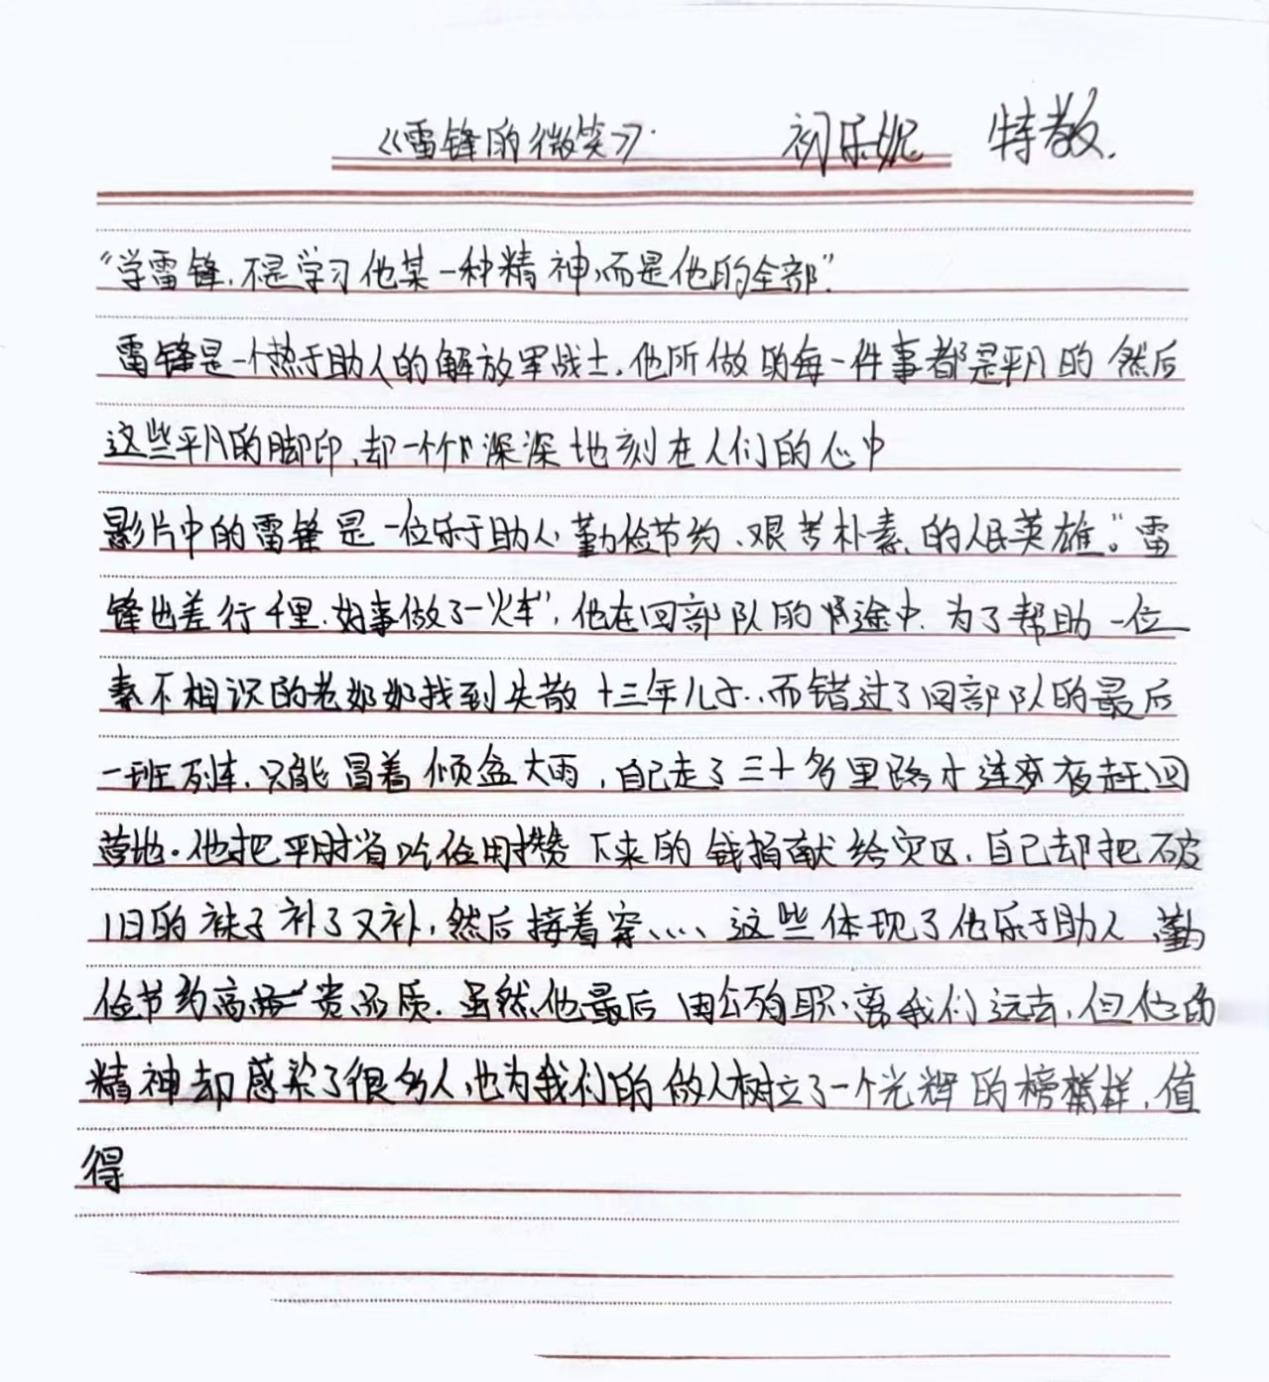 《雷锋的微笑》. 初乐妮 特教.
“学雷锋,不是学习他某一种精神,而是他的全部”.
雷锋是一个热于助人的解放军战士.他所做的每一件事都是平凡的 然后
这些平凡的脚印,却一个个深深地刻在人们的心中
影片中的雷锋是一位乐于助人、勤俭节约、艰苦朴素、的人民英雄。“雷
锋出差行千里.好事做了一火车”,他在回部队的途中.为了帮助一位
素不相识的老奶奶找到失散十三年儿子..而错过了回部队的最后
一班列车.只能冒着倾盆大雨,自己走了三十多里路才连夜赶回
营地.他把平时省吃俭用攒下来的钱捐献给灾区.自己却把破
旧的袜子补了又补,然后接着穿、... 这些体现了他乐于助人 勤
俭节约高贵品质.虽然他最后因公殉职.离我们远去,但他的
精神却感染了很多人,也为我们的做人树立了一个光辉的榜样.值
得